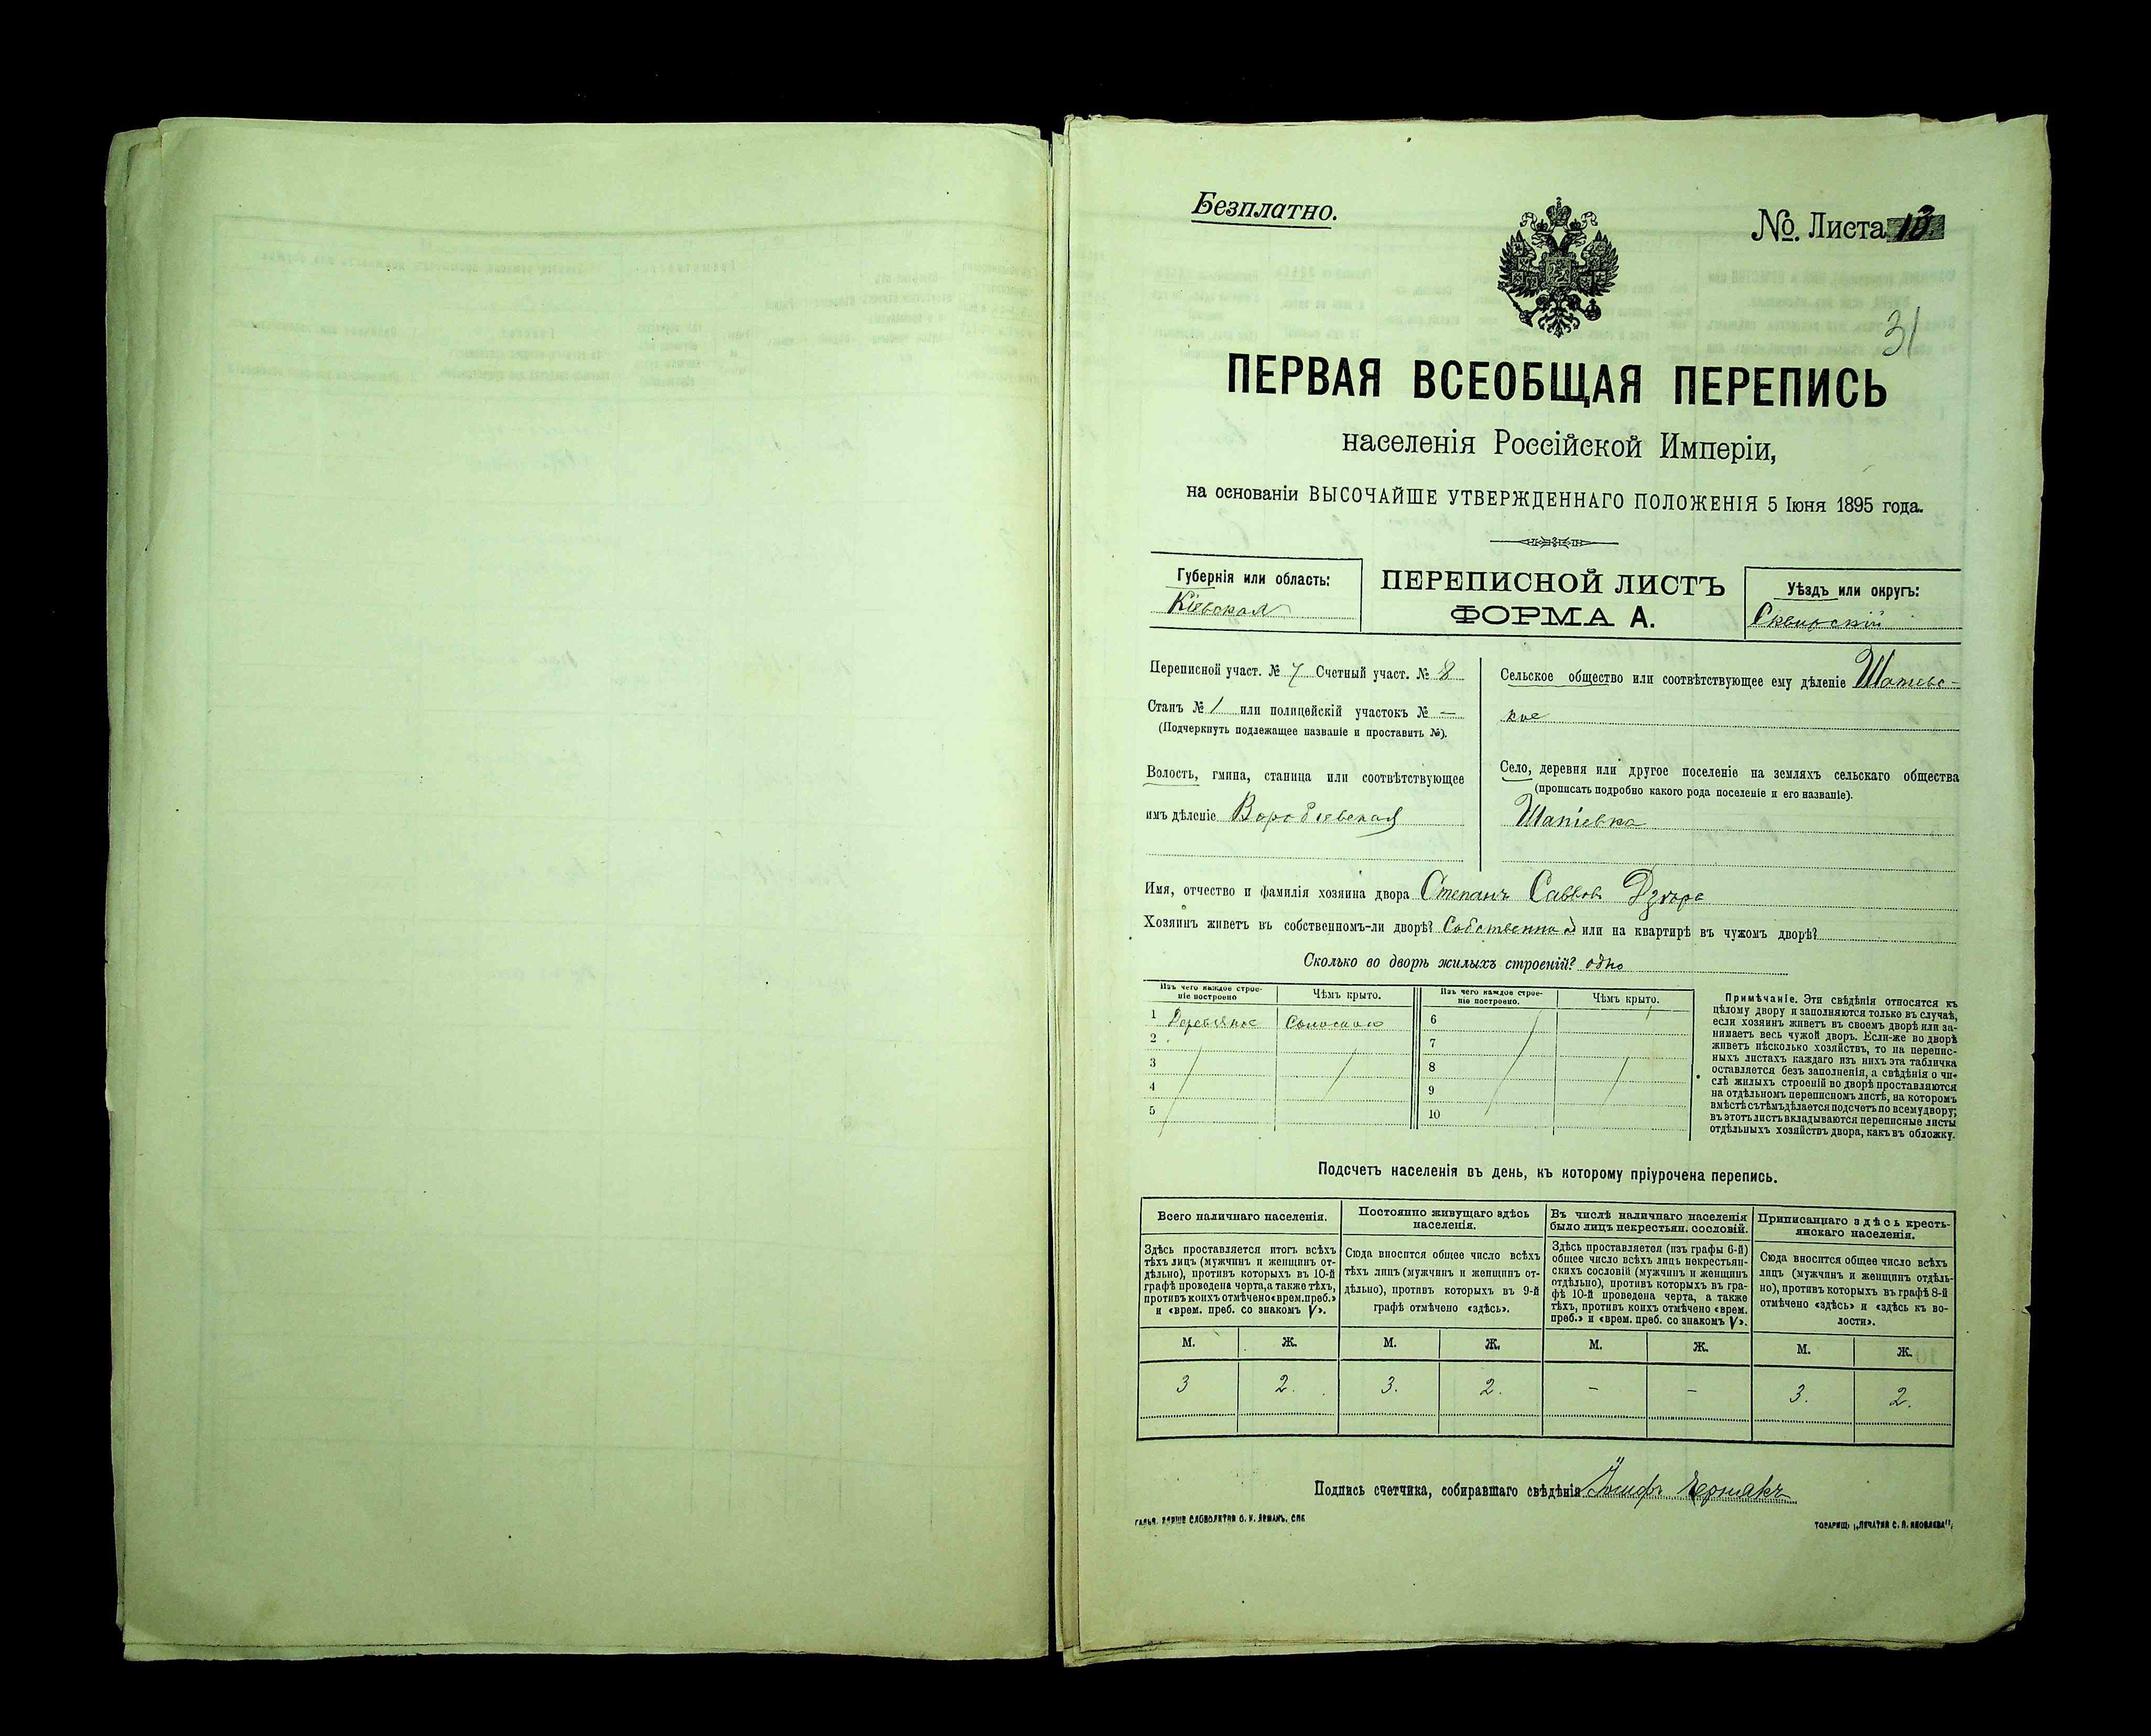 Безплатно.
№. Листа 13
31
ПЕРВАЯ ВСЕОБЩАЯ ПЕРЕПИСЬ
населенія Россійской Имперіи,
на основаніи ВЫСОЧАЙШЕ УТВЕРЖДЕННАГО ПОЛОЖЕНІЯ 5 Іюня 1895 года.
Губернія или область:
Кіевская
ПЕРЕПИСНОЙ ЛИСТЪ
ФОРМА А.
Уѣздъ или округъ:
Сквирскій
Переписной участ. № 7 Счетный участ. № 8
Станъ № 1 или полицейскій участокъ № —
(Подчеркнуть подлежащее названіе и проставить №).
Волость, гмина, станица или соотвѣтствующее
имъ дѣленіе Воробіевская
Сельское общество или соотвѣтствующее ему дѣленіе Шатіевс-
кое
Село, деревня или другое поселеніе на земляхъ сельскаго общества
(прописать подробно какого рода поселеніе и его названіе).
Шатіевка
Имя, отчество и фамилія хозяина двора Степанъ Саввовъ
Хозяинъ живетъ въ собственномъ-ли дворѣ? или на квартирѣ въ чужомъ дворѣ?
Сколько во дворѣ жилыхъ строеній? одно
Изъ чего каждое строе-
ніе построено
Чѣмъ крыто.
Изъ чего каждое строе-
ніе построено.
Чѣмъ крыто.
1 Деревянное Соломою
2
3
4
5
6
7
8
9
10
Примѣчаніе. Эти свѣдѣнія относятся къ
цѣлому двору и заполняются только въ случаѣ,
если хозяинъ живетъ въ своемъ дворѣ или за-
нимаетъ весь чужой дворъ. Если-же во дворѣ
живетъ нѣсколько хозяйствъ, то на перепис-
ныхъ листахъ каждаго изъ нихъ эта табличка
оставляется безъ заполненія, а свѣдѣнія о чи-
слѣ жилыхъ строеній во дворѣ проставляются
на отдѣльномъ переписномъ листѣ, на которомъ
вмѣстѣ съ тѣмъ дѣлается подсчетъ по всему двору;
въ этотъ листъ вкладываются переписные листы
отдѣльныхъ хозяйствъ двора, какъ въ обложку.
Подсчетъ населенія въ день, къ которому пріурочена перепись.
Всего наличнаго населенія.
Постоянно живущаго здѣсь
населенія.
Въ числѣ наличнаго населенія
было лицъ некрестьян. сословій.
Приписаннаго здѣсь кресть-
янскаго населенія.
Здѣсь проставляется итогъ всѣхъ
тѣхъ лицъ (мужчинъ и женщинъ от-
дѣльно), противъ которыхъ въ 10-й
графѣ проведена черта, а также тѣхъ,
противъ коихъ отмѣчено «врем. преб.»
и «врем. преб. со знакомъ V».
Сюда вносится общее число всѣхъ
тѣхъ лицъ (мужчинъ и женщинъ от-
дѣльно), противъ которыхъ въ 9-й
графѣ отмѣчено «здѣсь».
Здѣсь проставляется (изъ графы 6-й)
общее число всѣхъ лицъ некрестьян-
скихъ сословій (мужчинъ и женщинъ
отдѣльно), противъ которыхъ въ гра-
фѣ 10-й проведена черта, а также
тѣхъ, противъ коихъ отмѣчено «врем.
преб.» и «врем. преб. со знакомъ V».
Сюда вносится общее число всѣхъ
лицъ (мужчинъ и женщинъ отдѣль-
но), противъ которыхъ въ графѣ 8-й
отмѣчено «здѣсь» и «здѣсь къ во-
лости».
М. Ж. М. Ж. М. Ж. М. Ж.
3 2. 3. 2. – – 3. 2.
Подпись счетчика, собиравшаго свѣдѣнія Іосифъ Ермакъ
ТОВАРИЩ. „ПЕЧАТНЯ С. П. ЯКОВЛЕВА“.